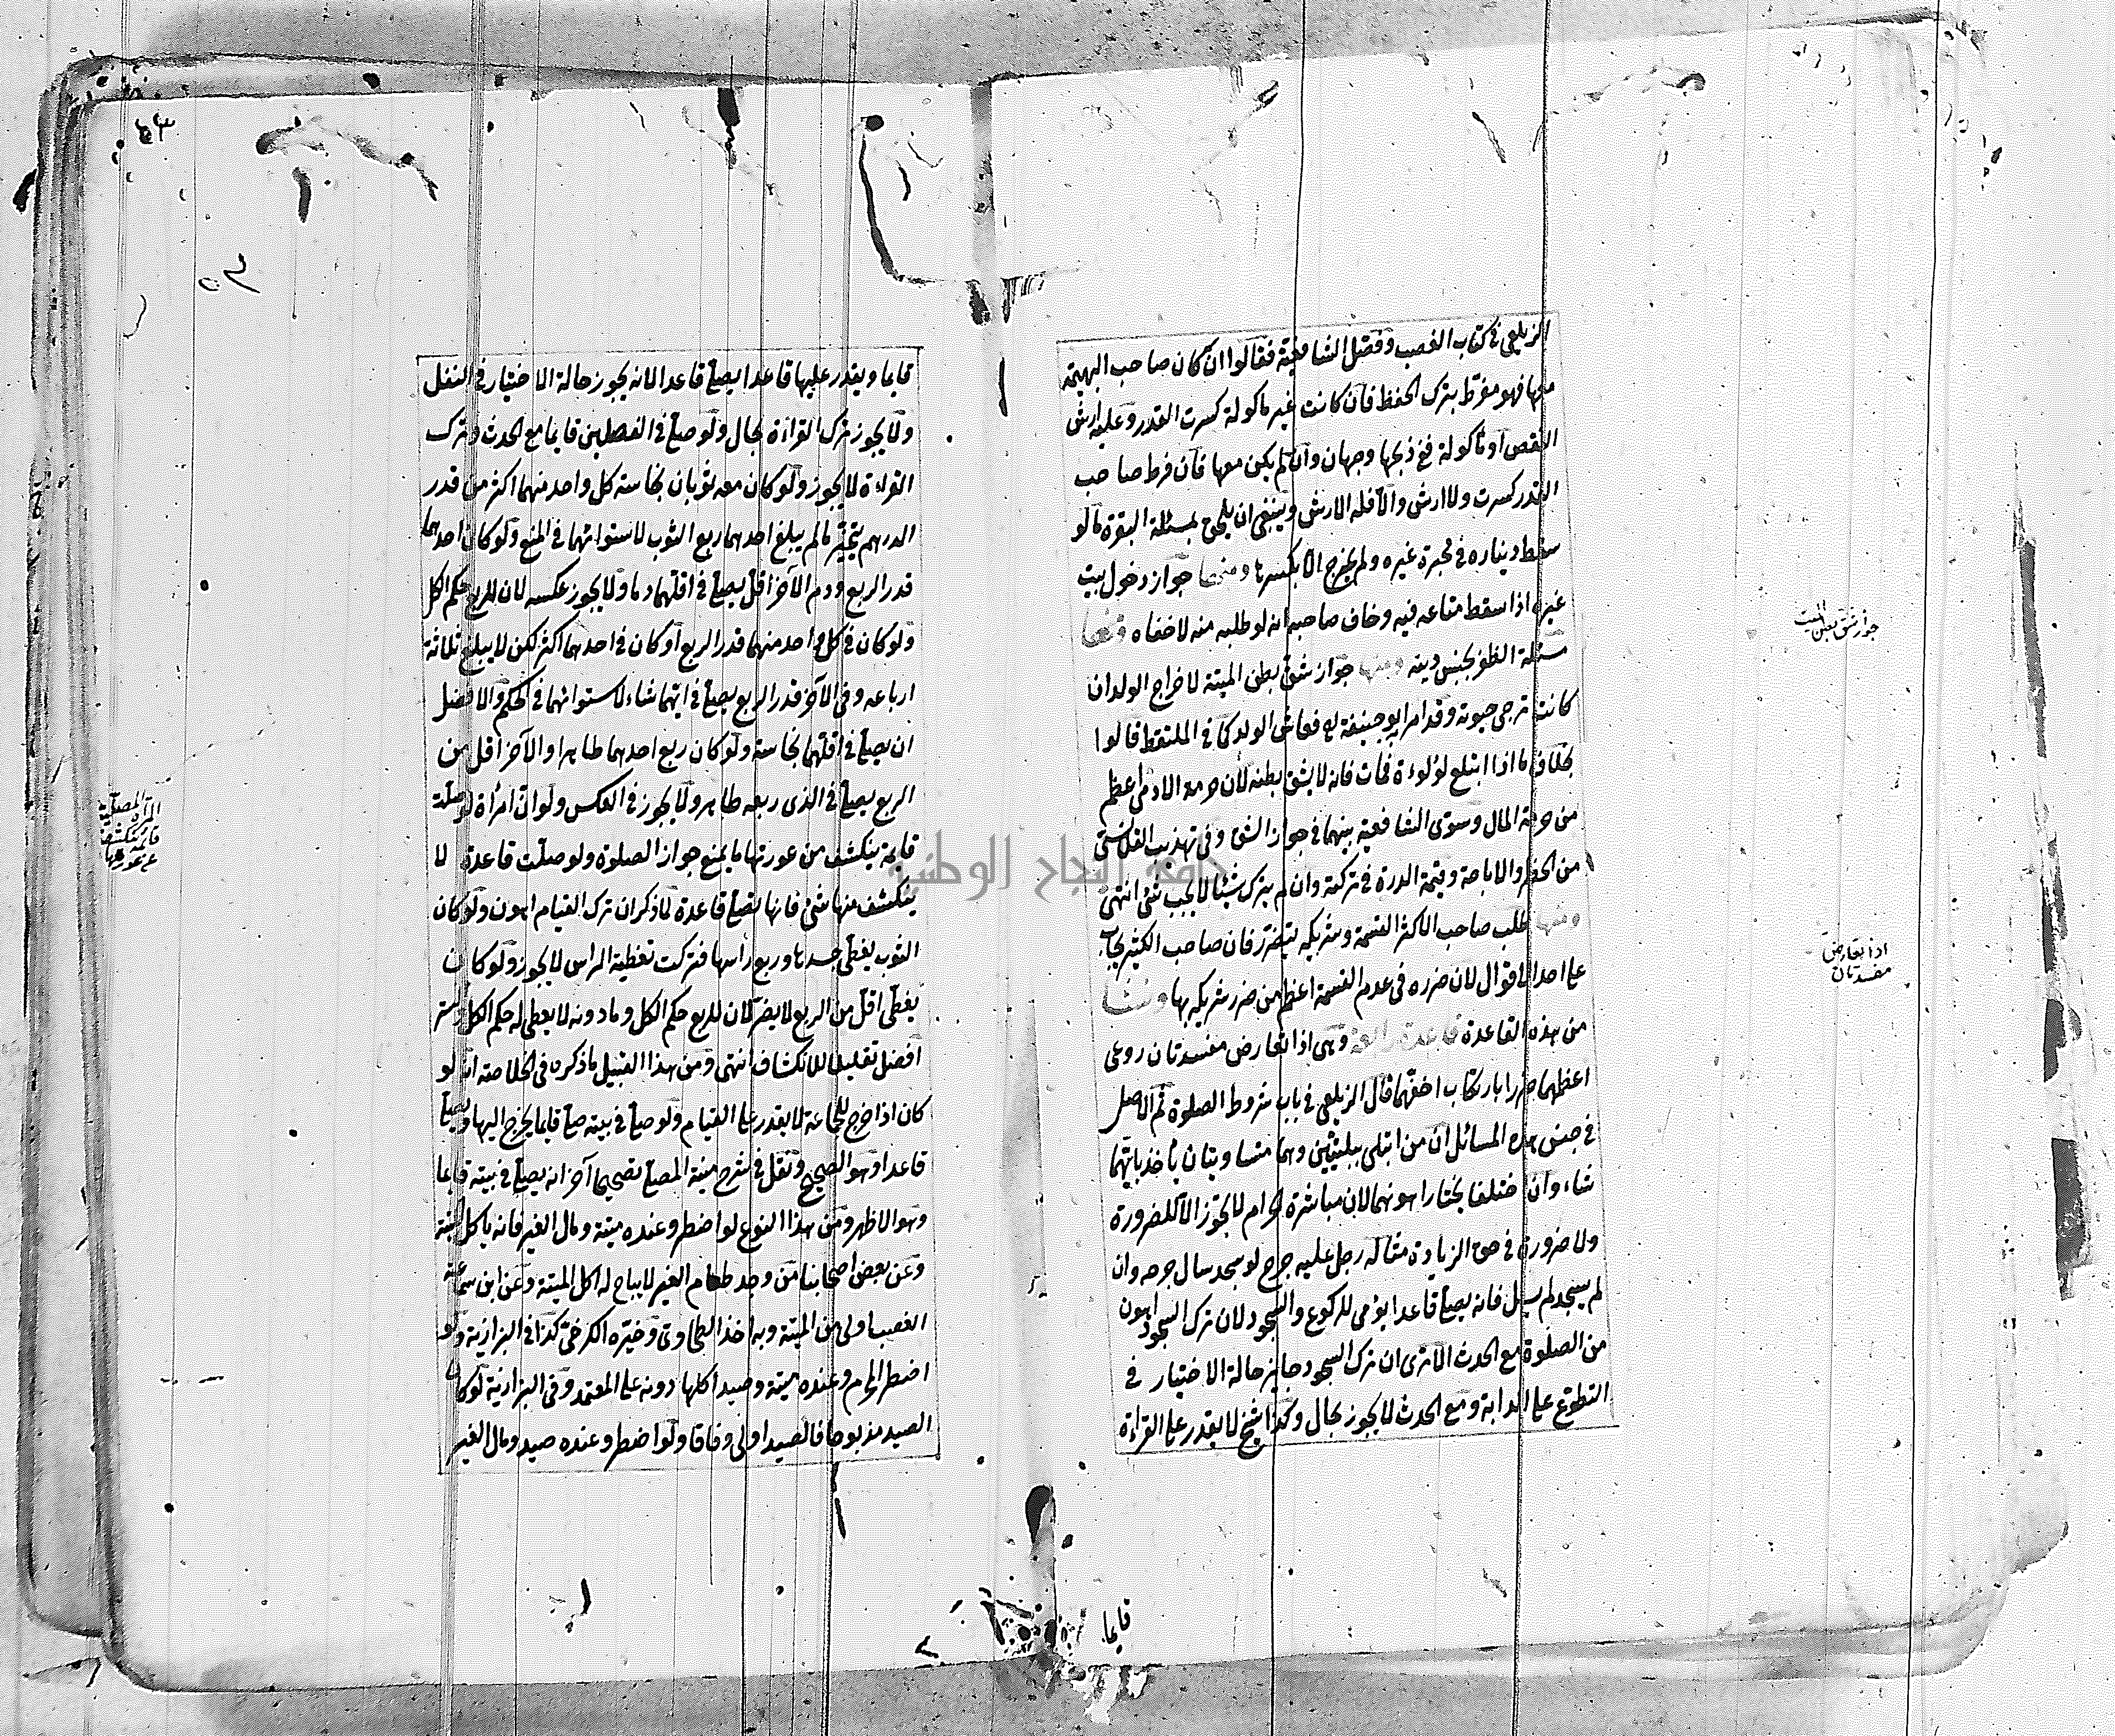 الزيلعي في كتاب الغصب وفصل الشافعية فقالوا ان كان صاحب البهيمة
معها فهو مفرط بترك الحفظ فان كانت غير ماكولة كسرت القدر وعليه ارش
النقص او ماكولة ففي ذبحها وجهان وان لم يكن معها فان فرط صاحب
القدر كسرت ولا ارش والا فله الارش وينبغي ان يلحق بمسئلة البقرة ما لو
سقط ديناره في محبرة غيره ولم يخرج الا بكسرها ومنها جواز دخول بيت
غيره اذا سقط متاعه فيه وخاف صاحبه انه لو طلبه منه لاخفاه ومنها
مسئلة الظفر بجنس دينه ومنها جواز شق بطن الميتة لاخراج الولد ان
كانت ترجى حيوته وقد امر ابو حنيفة به فعاش الولد كما في الملتقط قالوا
بخلاف ما اذا ابتلع لؤلوءة فمات فانه لا يشق بطنه لان حرمة الادمي اعظم
من حرمة المال وسوى الشافعية بينهما في جواز الشق وفي تهذيب القلانسي
من الحظر والاباحة وقيمة الدرة في تركته وان لم يترك شيئا لا يجب شئ انتهى
ومنها طلب صاحب الاكثر القسمة وشريكه يتضرر فان صاحب الكثير يجاب
على احد الاقوال لان ضرره في عدم القسمة اعظم من ضرر شريكه بها ونشا
من هذه القاعدة قاعدة رابعة وهي اذا تعارض مفسدتان روعي
اعظمهما ضررا بارتكاب اخفهما قال الزيلعي في باب شروط الصلوة ثم الاصل
في جنس هذه المسائل ان من ابتلي ببليتين وهما متساويتان ياخذ بايتهما
شاء وان اختلفا يختار اهونهما لان مباشرة الحرام لا تجوز الا للضرورة
ولا ضرورة في حق الزيادة مثاله رجل عليه جرح لو سجد سال جرحه وان
لم يسجد لم يسل فانه يصلي قاعدا يؤمي للركوع والسجود لان ترك السجود اهون
من الصلوة مع الحدث الا ترى ان ترك السجود جايز حالة الاختيار في
التطوع على الدابة ومع الحدث لا يجوز بحال وكذا شيخ لا يقدر على القراءة
قايما
جواز شق بطن الميت
اذا تعارض
مفسدتان
٥٣
٥٣
قايما ويقدر عليها قاعدا يصلي قاعدا لانه يجوز حالة الاختيار في النفل
ولا يجوز ترك القراءة بحال ولو صلى في الفصلين قايما مع الحدث وترك
القراءة لا يجوز ولو كان معه ثوبان نجاسة كل واحد منهما اكثر من قدر
الدرهم يتخير ما لم يبلغ احدهما ربع الثوب لاستوائهما في المنع ولو كان احدهما
قدر الربع ودم الآخر اقل يصلي في اقلهما دما ولا يجوز عكسه لان للربع حكم الكل
ولو كان في كل واحد منهما قدر الربع او كان في احدهما اكثر لكن لا يبلغ ثلاثة
ارباعه وفي الآخر قدر الربع يصلي في ايهما شاء لاستوائهما في الحكم والافضل
ان يصلي في اقلهما نجاسة ولو كان ربع احدهما طاهرا والآخر اقل من
الربع يصلي في الذي ربعه طاهر ولا يجوز في العكس ولو ان امرأة لو صلت
قايمة ينكشف من عورتها ما يمنع جواز الصلوة ولو صلت قاعدة لا
ينكشف منها شئ فانها تصلي قاعدة لما ذكر ان ترك القيام اهون ولو كان
الثوب يغطي جسدها وربع رأسها فتركت تغطية الراس لا يجوز ولو كان
يغطي اقل من الربع لا يضر لان للربع حكم الكل وما دونه لا يعطى له حكم الكل والستر
افضل تقليلا للانكشاف انتهى ومن هذا القبيل ما ذكره في الخلاصة انه لو
كان اذا خرج للجماعة لا يقدر على القيام ولو صلى في بيته صلى قايما يخرج اليها ويصلي
قاعدا وهو الصحيح ونقل في شرح منية المصلي تصحيحا آخر انه يصلي في بيته قايما
وهو الاظهر ومن هذا النوع لو اضطر وعنده ميتة ومال الغير فانه ياكل الميتة
وعن بعض اصحابنا من وجد طعام الغير لا يباح له اكل الميتة وعن ابن سماعة
الغصب اولى من الميتة وبه اخذ الطحاوي وخيره الكرخي كذا في البزازية ولو
اضطر المحرم وعنده ميتة وصيد اكلها دونه على المعتمد وفي البزازية لو كان
الصيد مذبوحا فالصيد اولى وفاقا ولو اضطر وعنده صيد ومال الغير
المرأة المصلية
قائمة ينكشف
من عورتها
جامعة النجاح الوطنية